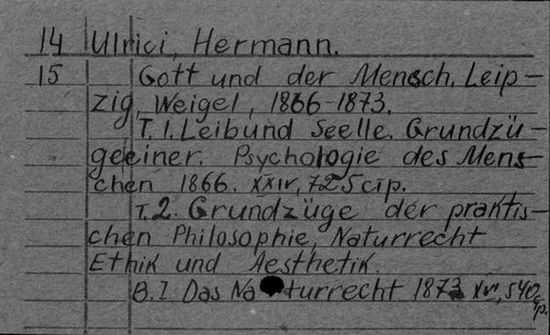 14 Ulrici, Hermann.
15 Gott und der Mensch. Leip-
zig, Weigel, 1866-1873.
T. 1. Leib und Seelle. Grundzü-
geeiner. Psychologie des Mens-
chen 1866. XXIV, 725 стр.
T. 2. Grundzüge der praktis-
chen Philosophie, Naturrecht
Ethik und Aesthetik.
B. I. Das Naturrecht 1873 XVI, 540 стр.